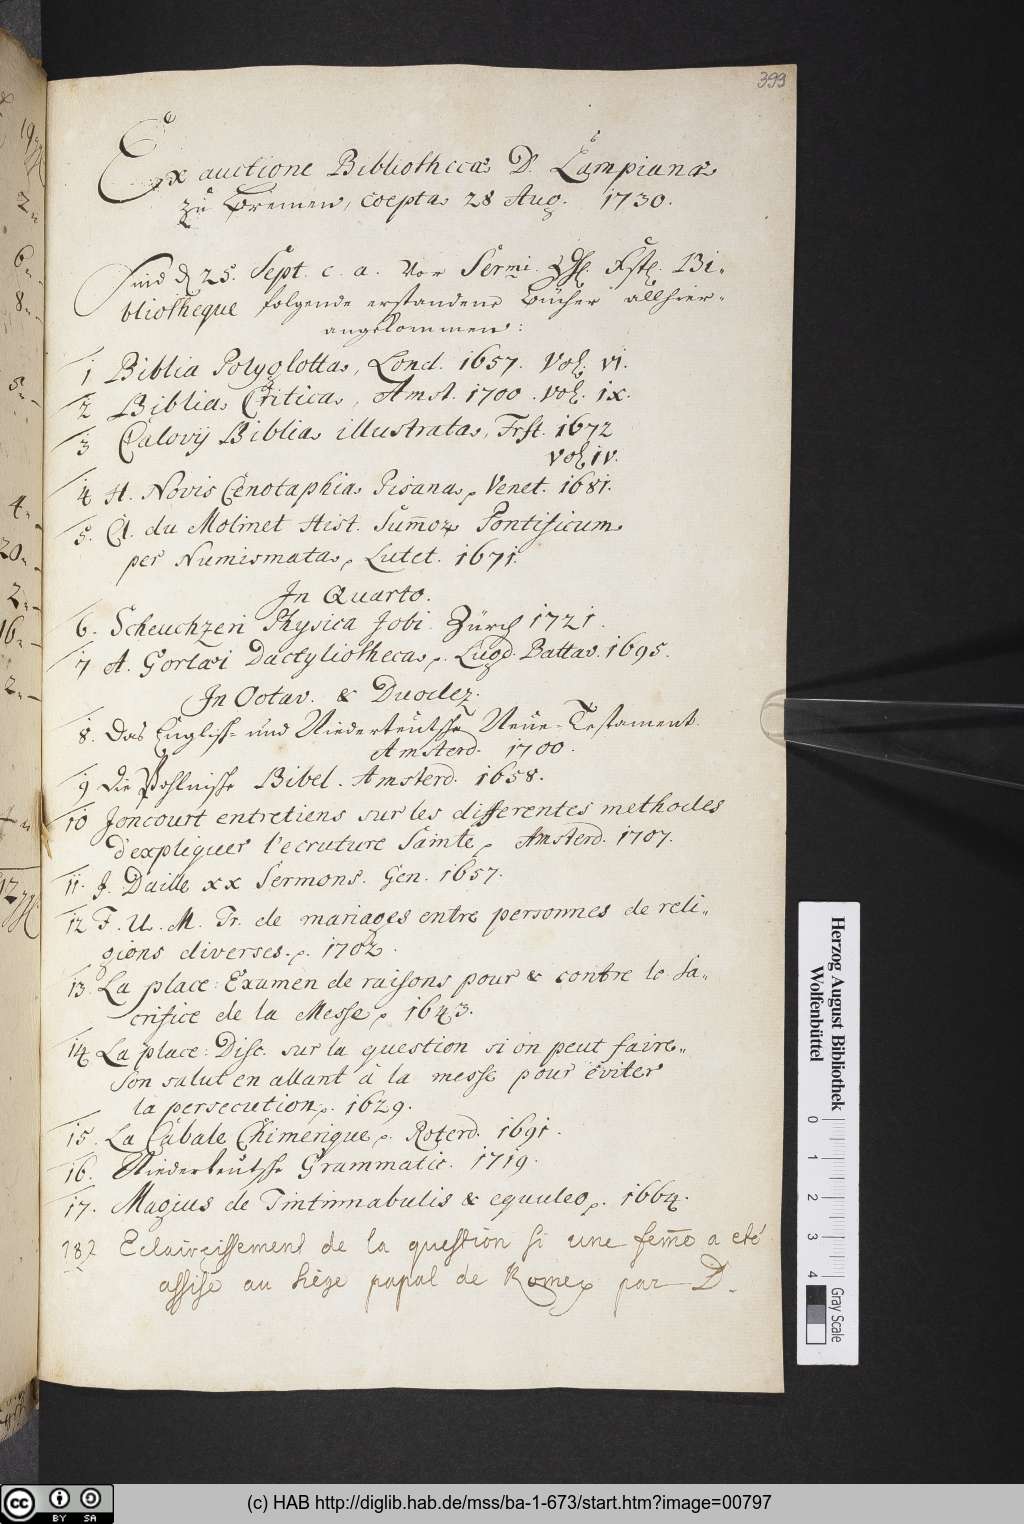 399
Ex auctione Bibliothecæ D. Lampianæ
zu Bremen, coepta 28 Aug. 1730.
Sind d 25. Sept. c. a. vor Sermi. Hf. Fstl. Bi-
bliotheque folgende erstandene Bücher allhier
angekommen:
1 Biblia Polyglotta, Lond. 1657. Vol. VI.
2 Biblia Critica, Amst. 1700. Vol. IX.
3 Calovij Biblia illustrata, Frft. 1672
Vol. IV.
4 H. Noris Cenotaphia Pisana, Venet. 1681.
5. Cl. du Molinet Hist. Sum̄or Pontificum
per Numismata, Lutet. 1671.
In Quarto.
6. Scheuchzeri Physica Jobi. Zürch 1721.
7 A. Gorlæi Dactyliotheca, Lugd. Battav. 1695.
In Octav. & Duodez.
8. Das Englisch- und Niederteutsche Neue-Testament.
Amsterd. 1700.
9 Die Pohlnische Bibel. Amsterd. 1658.
10 Joncourt entretiens sur les differentes methodes
d'expliquer l'ecruture Sainte, Amsterd. 1707.
11. J. Daille XX Sermons. Gen. 1657.
12 F. U. M. Tr. de mariages entre personnes de reli-
gions diverses. 1702.
13. La place: Examen de raisons pour & contre le Sa-
crifice de la Messe, 1643.
14 La place: Disc. sur la question si on peut faire
son salut en allant à la messe pour eviter
la persecution. 1629.
15. La Cabale Chimerique, Roterd. 1691.
16. Niederteutsche Grammatic. 1719.
17. Magius de Tintinnabulis & equuleo, 1664.
18 Eclaircissement de la question si une fem̄e a eté
assise au Siège papal de Rome par D.
4
20
2
16
2
12
Herzog August Bibliothek
Wolfenbüttel
0 1 2 3 4 Gray Scale
cc BY SA
(c) HAB http://diglib.hab.de/mss/ba-1-673/start.htm?image=00797